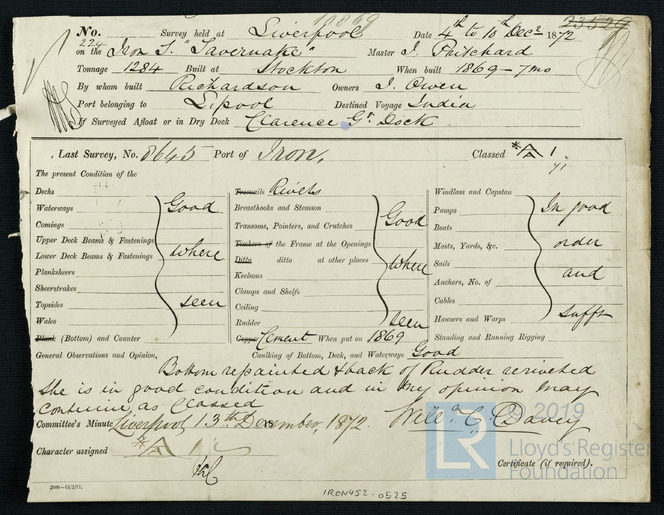 10869
No. 224 Survey held at Liverpool Date 4th to 10th Decr 1872
23529
on the Iron S. "Tavernake" Master J. Pritchard
Tonnage 1284 Built at Stockton When built 1869 - 7 mo
By whom built Richardson Owners J. Owen
Port belonging to L'pool Destined Voyage India
If Surveyed Afloat or in Dry Dock Clarence Gr. Dock
Last Survey, No. 8645 Port of Iron. Classed *A 1
71
The present Condition of the
Decks
Waterways
Comings
Upper Deck Beams & Fastenings
Lower Deck Beams & Fastenings
Planksheers
Sheerstrakes
Topsides
Wales
Plank (Bottom) and Counter
Good
where
seen
Treenails Rivets
Breasthooks and Stemson
Transoms, Pointers, and Crutches
Timbers of the Frame at the Openings
Ditto ditto at other places
Keelsons
Clamps and Shelfs
Ceiling
Rudder
Copper Cement When put on 1869
Good
where
seen
Windlass and Capstan
Pumps
Boats
Masts, Yards, &c.
Sails
Anchors, No. of
Cables
Hawsers and Warps
Standing and Running Rigging
In good
order
and
sufft
General Observations and Opinion, Caulking of Bottom, Deck, and Waterways Good
Bottom repainted & back of Rudder reriveted
She is in good condition and in my opinion may
continue as Classed
Committee's Minute Liverpool, 13th December, 1872. Willm. C. Davey
Character assigned *A 1
Certificate (if required).
2000—13/2/71.
IRON452-0525
© 2019
LR
Lloyd's Register
Foundation